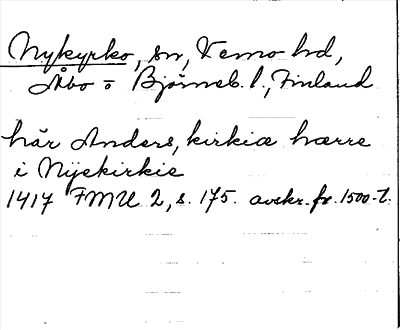 Nykyrko, sn, Vemo hd,
Åbo o Björneb. l., Finland
här Anders, kirkiæ hærre
i Nyekirkie
1417 FMU 2, s. 175. avskr. fr. 1500-t.